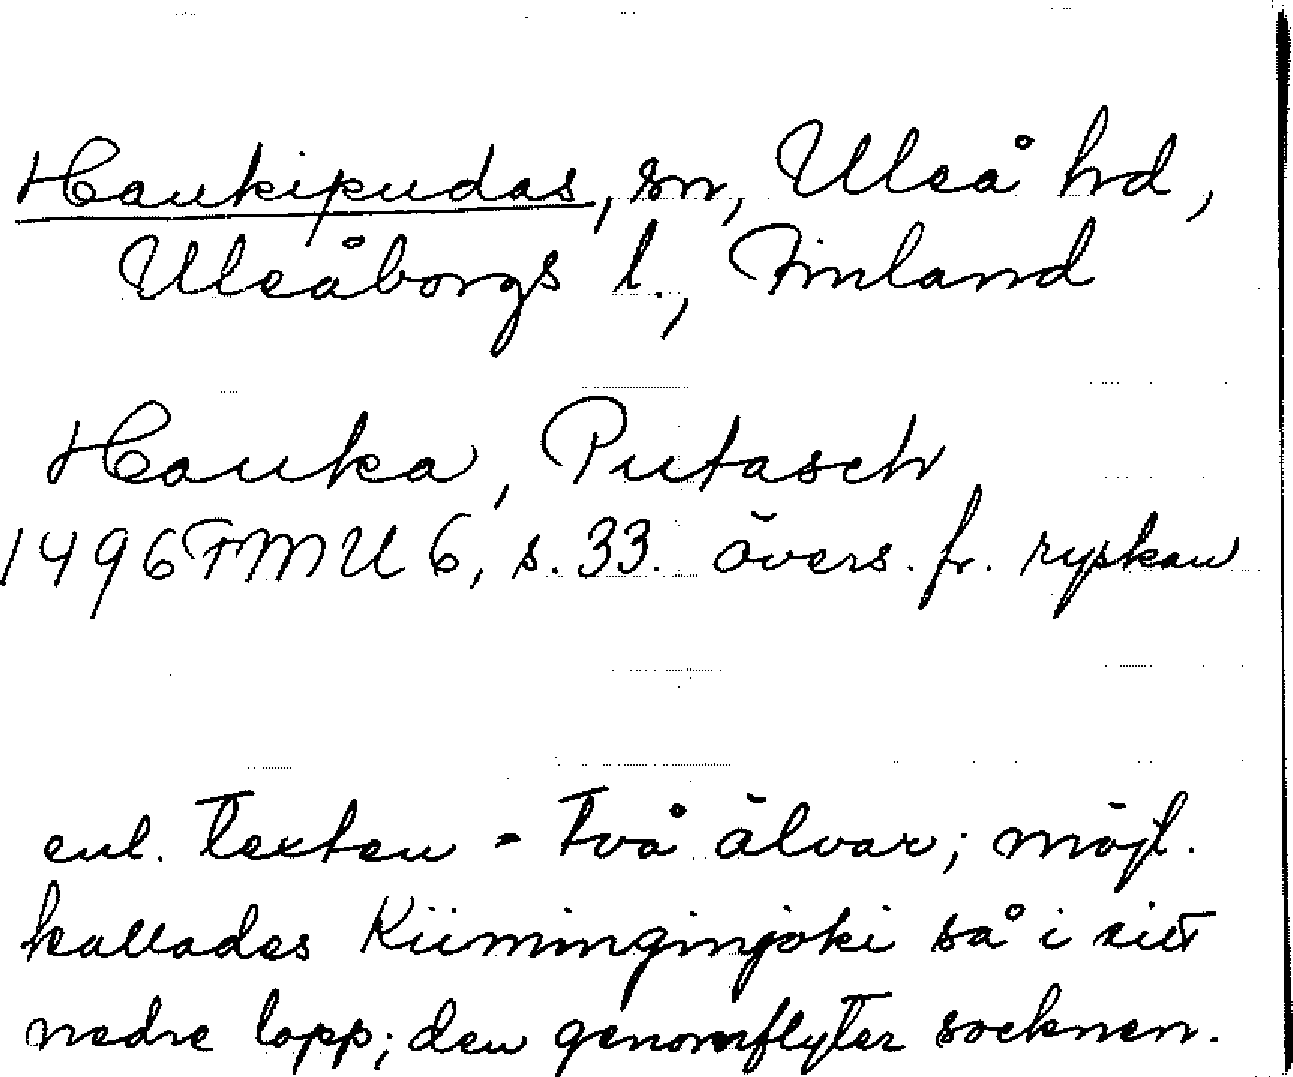 Haukipudas, sn, Uleå hrd,
Uleåborgs l., Finland
Hauka, Putasch
1496 FMU 6, s. 33. övers. fr. ryskan
enl. texten = två älvar; möjl.
kallades Kiiminginjoki så i sitt
nedre lopp; den genomflyter socknen.